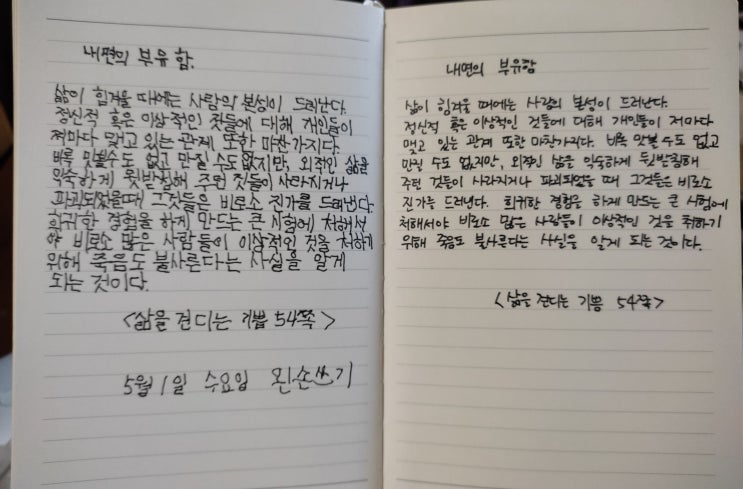 내면의 부유함.
삶이 힘겨울 때에는 사람의 본성이 드러난다.
정신적 혹은 이상적인 것들에 대해 개인들이
저마다 맺고 있는 관계 또한 마찬가지다.
비록 맛볼수도 없고 만질 수도없지만, 외적인 삶을
익숙하게 뒷받침해 주던 것들이 사라지거나
파괴되었을때 그것들은 비로소 진가를 드러낸다.
희귀한 경험을 하게 만드는 큰 시험에 처해서
야 비로소 많은 사람들이 이상적인 것을 취하기
위해 죽음도 불사른다는 사실을 알게
되는 것이다.
<삶을 견디는 기쁨 54쪽>
5월 1일 수요일 왼손쓰기
내면의 부유함
삶이 힘겨울 때에는 사람의 본성이 드러난다.
정신적 혹은 이상적인 것들에 대해 개인들이 저마다
맺고 있는 관계 또한 마찬가지다. 비록 맛볼 수도 없고
만질 수도 없지만, 외적인 삶을 익숙하게 뒷받침해
주던 것들이 사라지거나 파괴되었을 때 그것들은 비로소
진가를 드러낸다. 희귀한 경험을 하게 만드는 큰 시험에
처해서야 비로소 많은 사람들이 이상적인 것을 취하기
위해 죽음도 불사른다는 사실을 알게 되는 것이다.
<삶을 견디는 기쁨 54쪽>